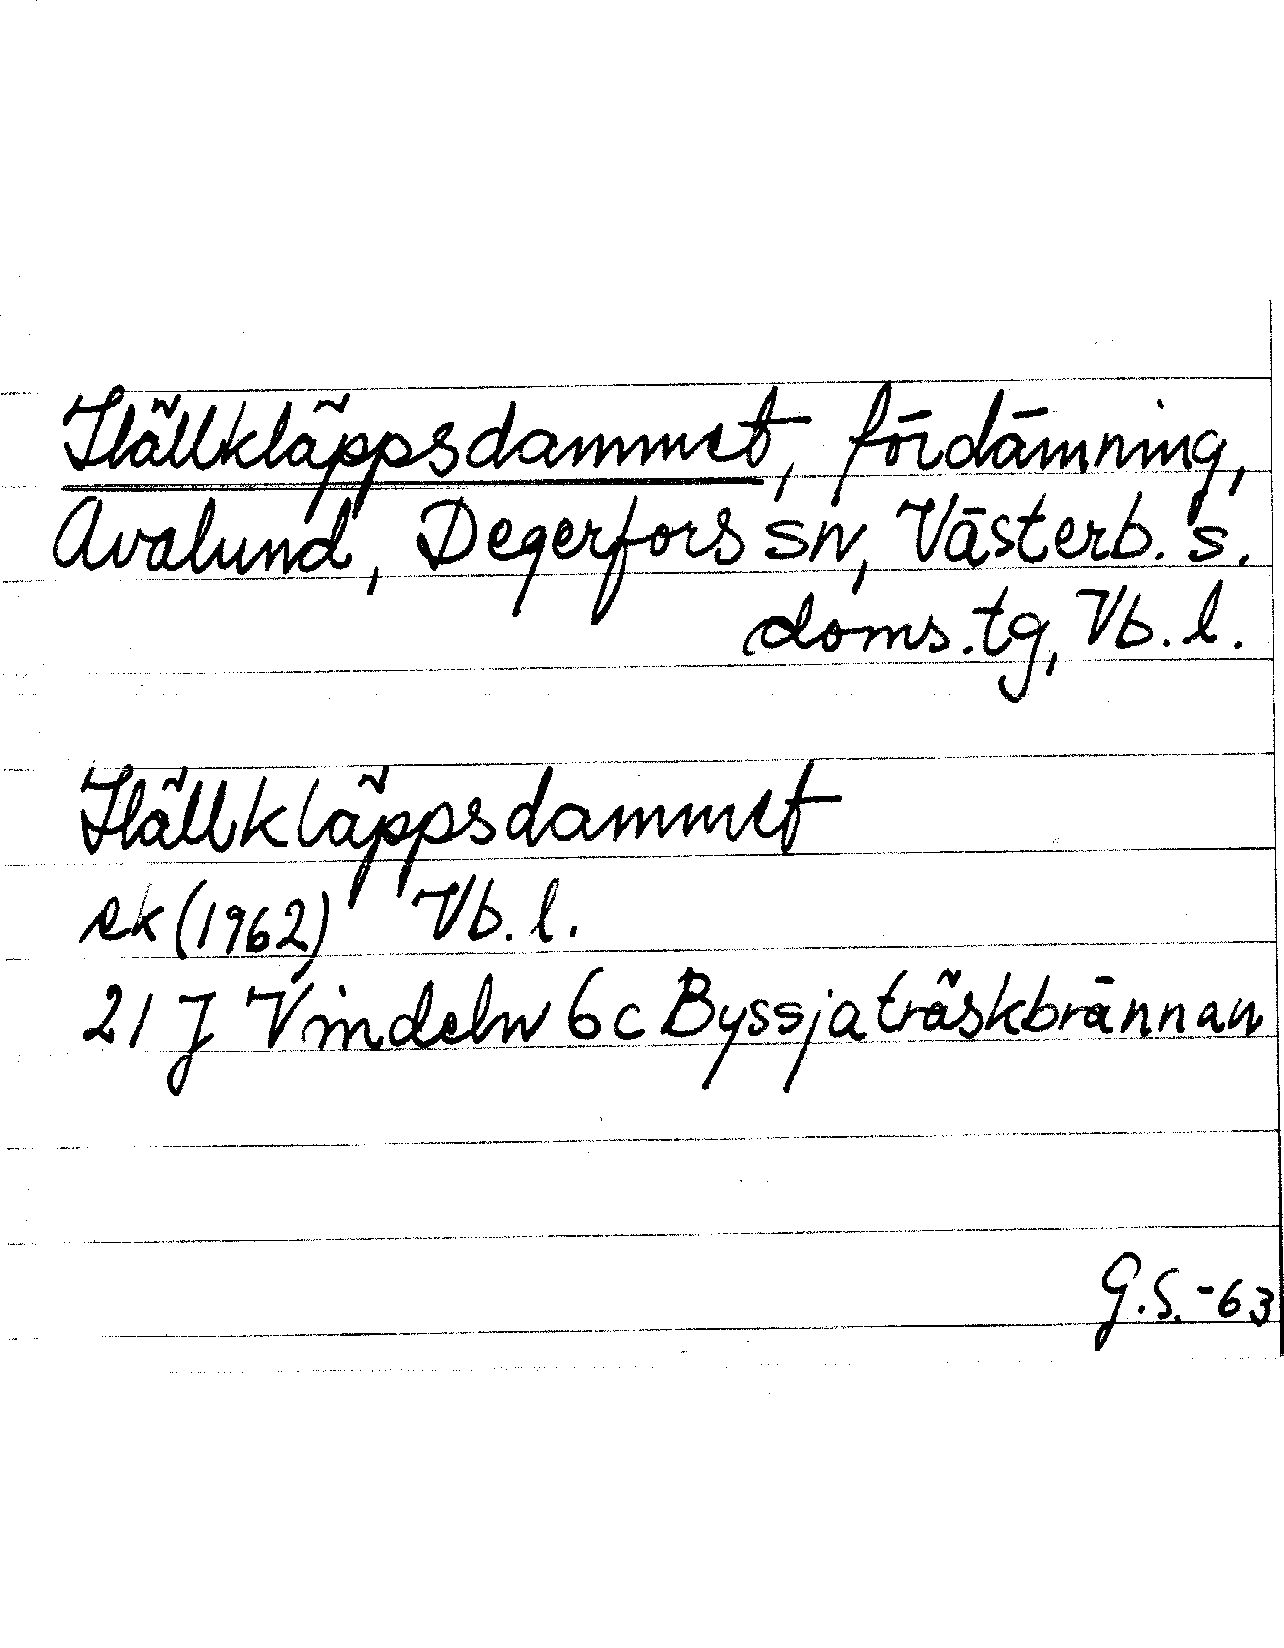 Hällkläppsdammet, fördämning,
Avalund, Degerfors sn, Västerb. s.
doms.tg, Vb. l.
Hällkläppsdammet
ek (1962) Vb. l.
21 J Vindeln 6 c Byssjaträskbrännan
G.S.-63